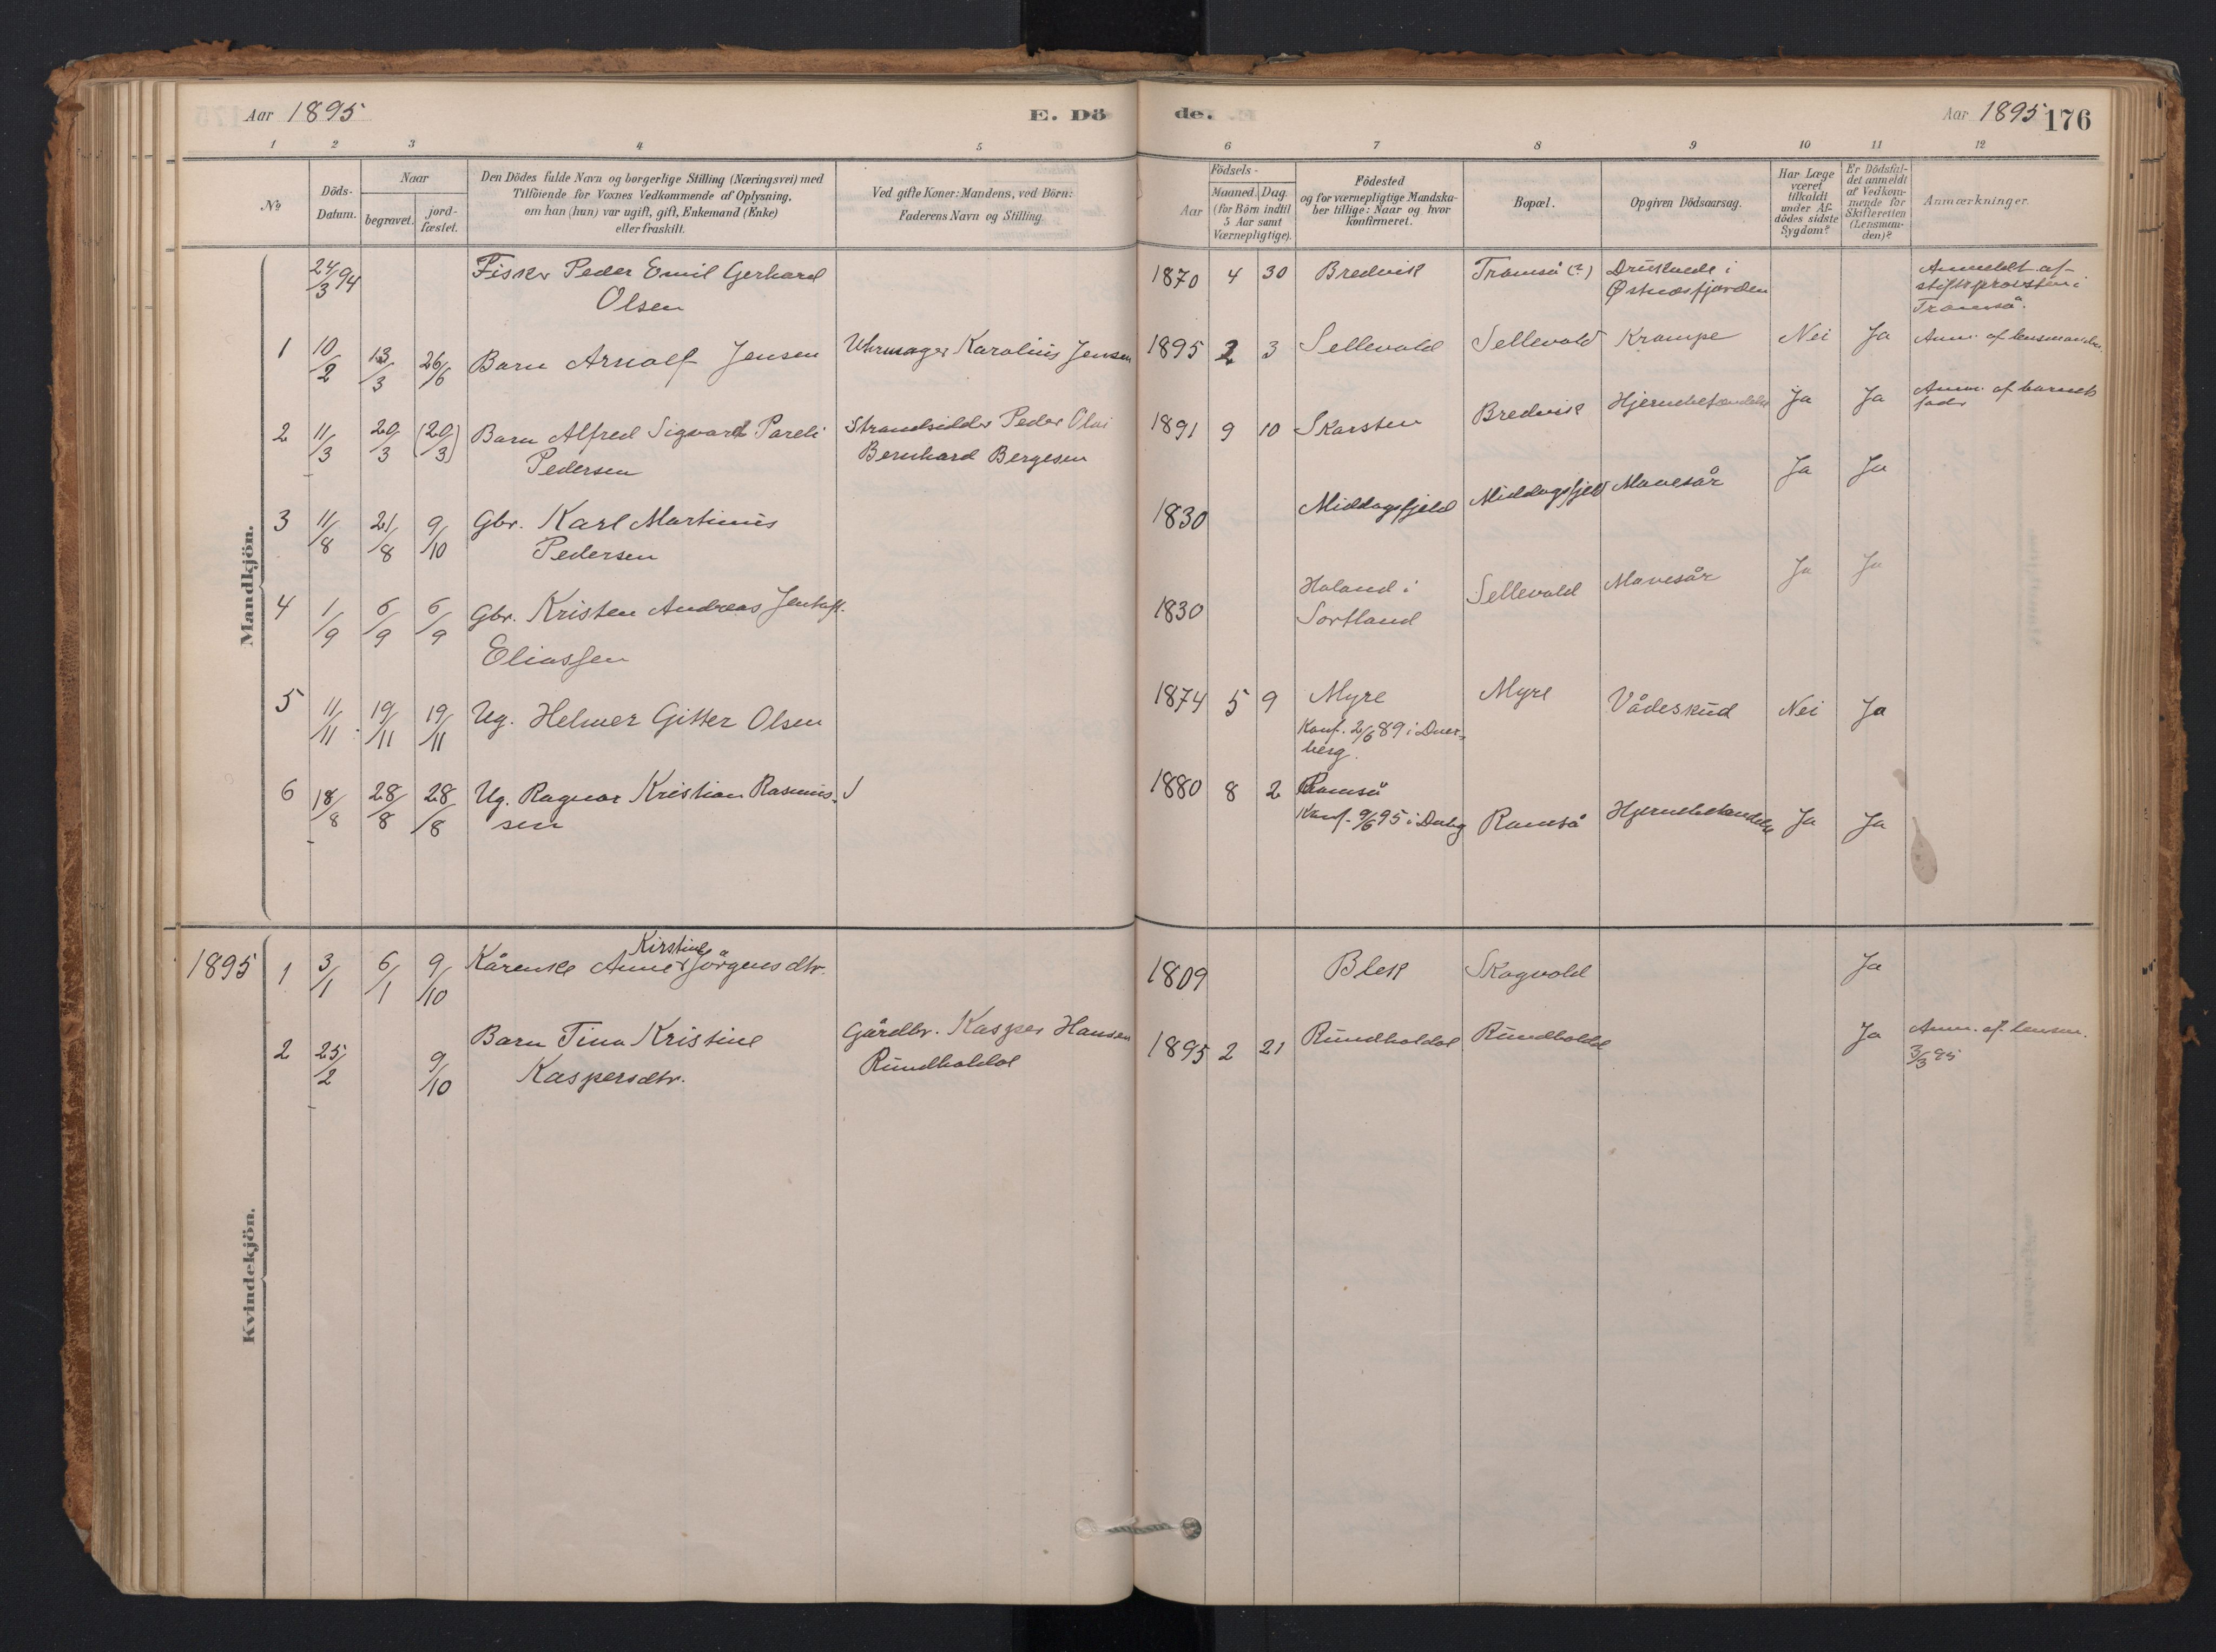 Aar 1895
E. Dö
de.
Aar 1895 176
1 2 3 4 5 6 7 8 9 10 11 12
No.
Döds-
Datum.
Naar
begravet.
jord-
fæstet.
Den Dödes fulde Navn og borgerlige Stilling (Næringsvei) med
Tilföiende for Voxnes Vedkommende af Oplysning,
om han (hun) var ugift, gift, Enkemand (Enke)
eller fraskilt.
Ved gifte Koner: Mandens, ved Börn:
Faderens Navn og Stilling
Födsels-
Aar
Maaned. Dag.
(for Börn indtil
5 Aar samt
Værnepligtige).
Födested
og for værnepligtige Mandska-
ber tillige: Naar og hvor
konfirmeret.
Bopæl.
Opgiven Dödsaarsag.
Har Læge
været
tilkaldt
under Af-
dödes sidste
Sygdom?
Er Dödsfal-
det anmeldt
af Vedkom-
mende for
Skifteretten
(Lensman-
den)?
Anmærkninger.
Mandkjön.
24/3 94 Fisker Peder Emil Gerhard 1870 4 30 Bredvik Tromsö (?) Druknede i Anmeldt af
Olsen Østnæsfjorden stiftsprovsten i
Tromså.
1 10/2 13/3 26/6 Barn Arnolf Jensen Uhrmager Karolius Jensen 1895 2 3 Sellevold Sellevold Krampe Nei Ja Anm. af lensmanden.
2 11/3 20/3 (20/3) Barn Alfred Sigvard Pareli Strandsidder Peder Olai 1891 9 10 Skarsten Bredvik Hjernebetændelse Ja Ja Anm. af barnets
Pedersen Bernhard Bergesen fader
3 11/8 21/8 9/10 Gbr. Karl Martinus 1830 Middagsfjeld Middagsfjeld Mavesår Ja Ja
Pedersen
4 1/9 6/9 6/9 Gbr. Kristen Andreas Jentoft 1830 Holand i Sellevold Mavesår Ja Ja
Eliassen Sortland
5 11/11 19/11 19/11 Ug. Helmer Gitter Olsen 1874 5 9 Myre Myre Vådeskud Nei Ja
Konf. 2/6 89 i Dver-
berg.
6 18/8 28/8 28/8 Ug. Ragnar Kristian Rasmus- 1880 8 2 Ramså
sen Konf. 9/6 95 i Dvbg Ramså Hjernebetændelse Ja Ja
Kvindekjön.
Kirstine
1895 1 3/1 6/1 9/10 Kårenke Anne Jörgensdtr. 1809 Blek Skogvold Ja
2 25/2 9/10 Barn Tina Kristine Gårdbr. Kasper Hansen 1895 2 21 Rundholdol Rundholdol Ja Anm. af lensm.
Kaspersdtr. Rundholdol 3/3 95